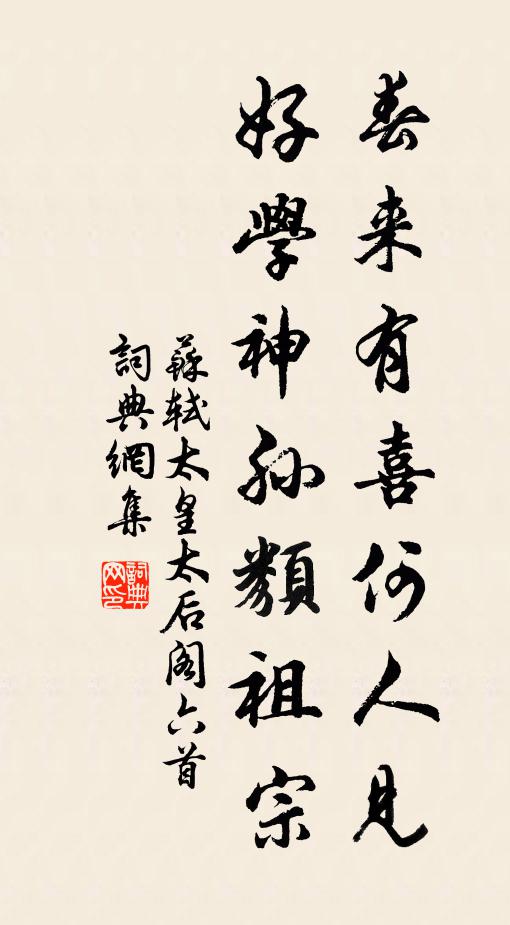 春来有喜何人見
好學神孫類祖宗
蘇軾太皇太后阁六首
詞典網集
詞典网印